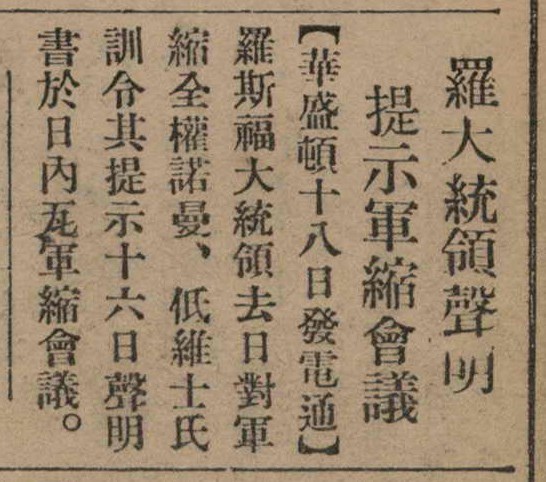 羅大統領聲明
提示軍縮會議
【華盛頓十八日發電通】
羅斯福大統領去日對軍
縮全權諾曼、低維士氏
訓令其提示十六日聲明
書於日內瓦軍縮會議。